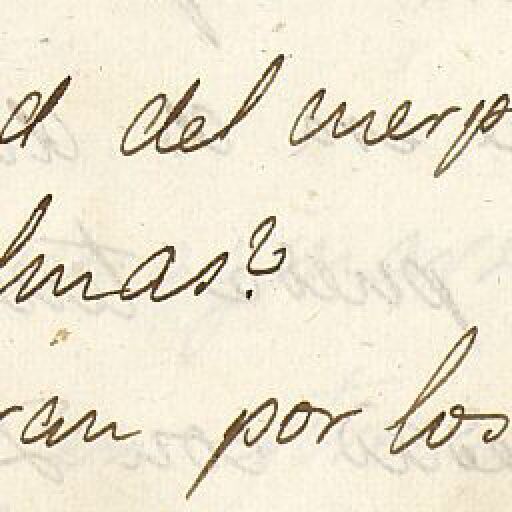 d del cuerp
lmas?
ran por los